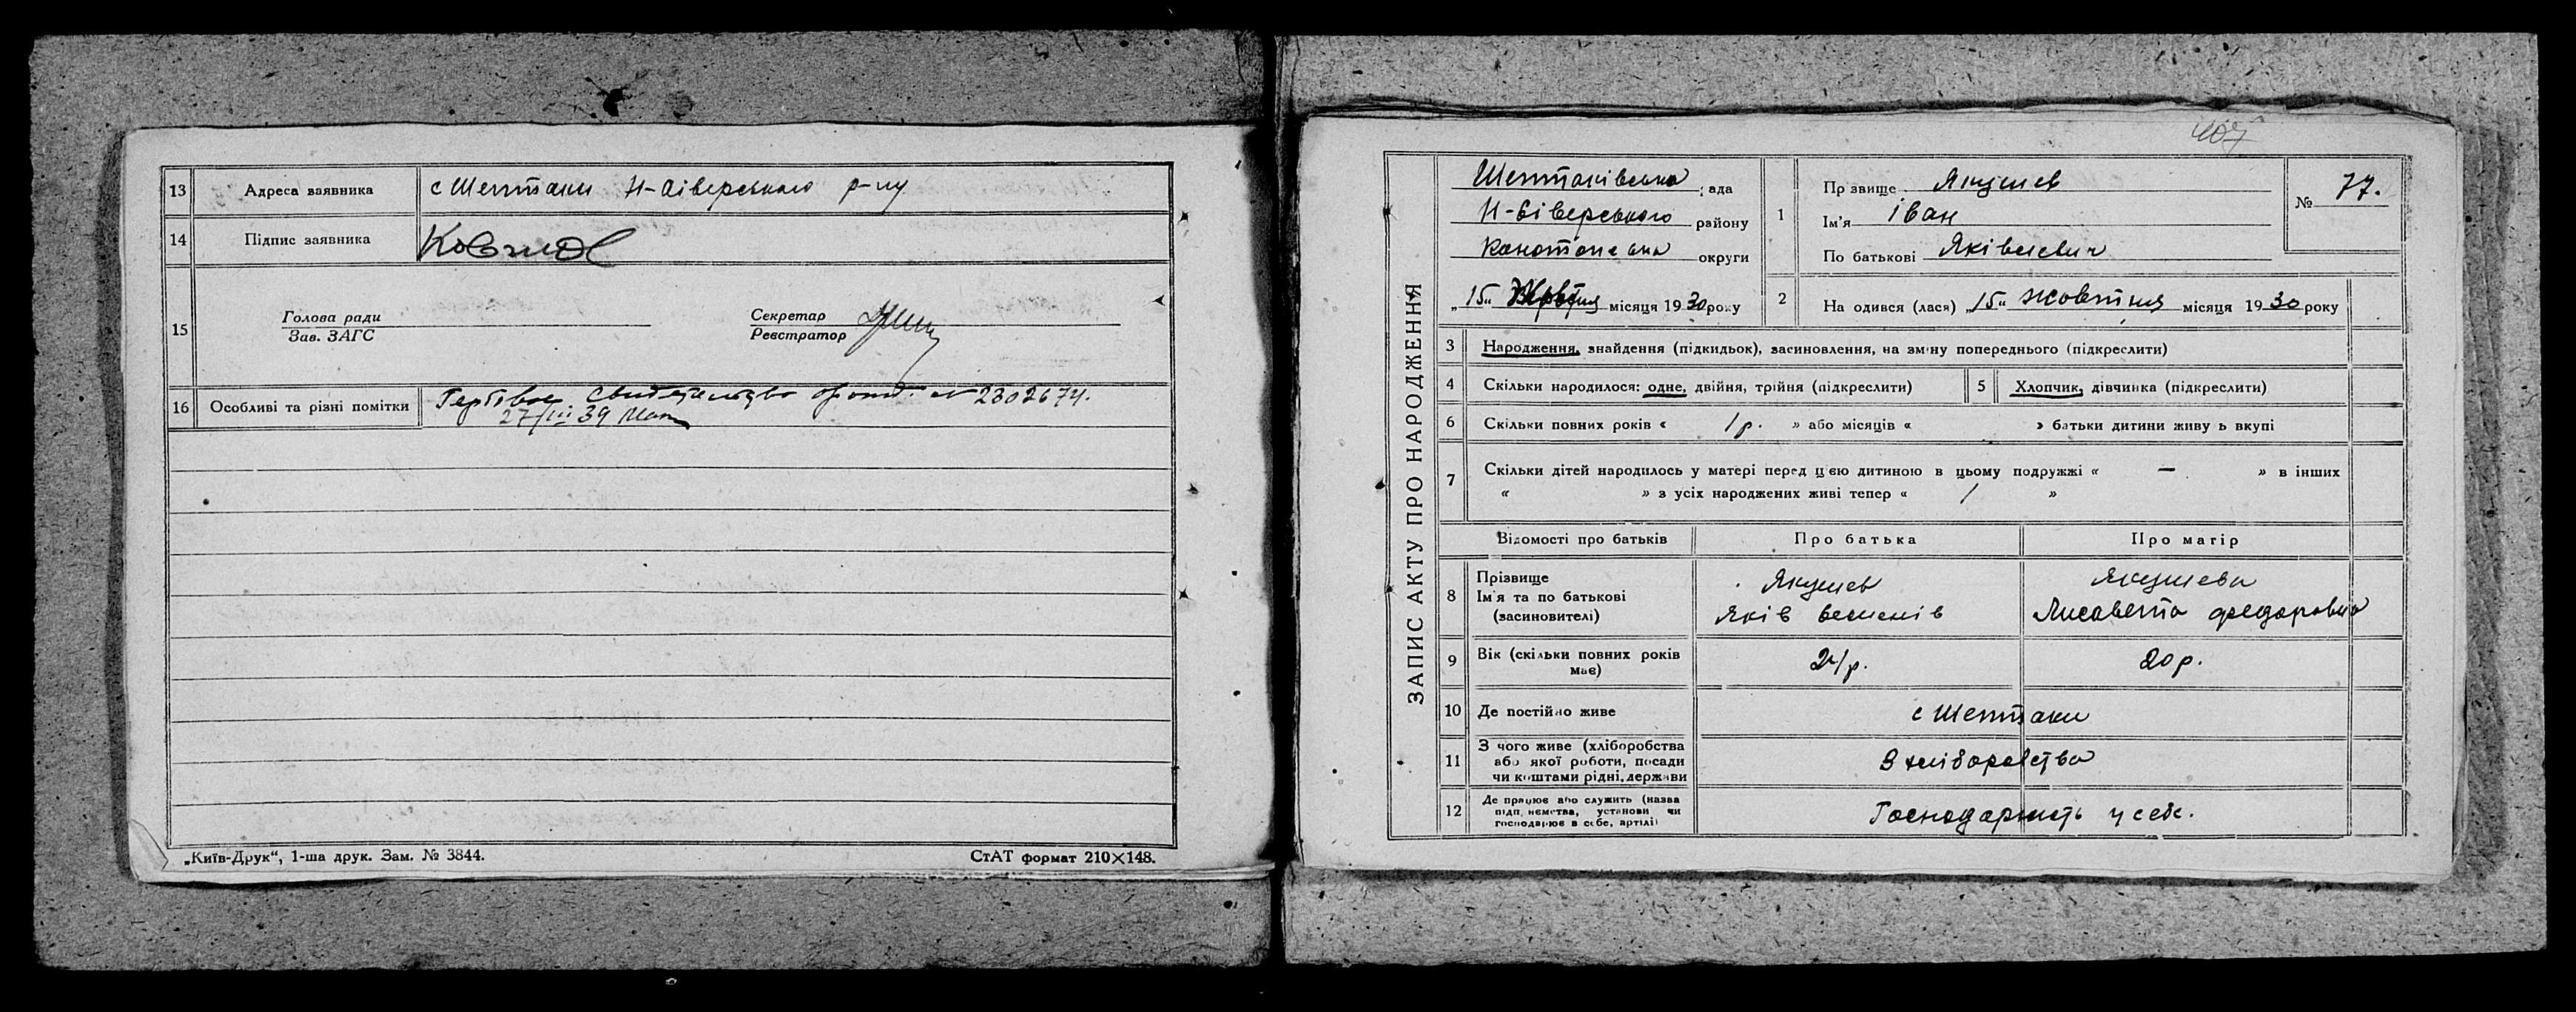 13 Адреса заявника с Шептаки Н-Сіверського р-ну
14 Підпис заявника
15 Голова ради
Зав. ЗАГС
Секретар
Реєстратор
16 Особливі та різні помітки Гербівое свидетельство № 2302674.
27/III 39
„Київ-Друк“, 1-ша друк. Зам. № 3844.
СтАТ формат 210×148.
407
ЗАПИС АКТУ ПРО НАРОДЖЕННЯ
Шептаківська рада
Н-Сіверського району
Конотопська округи
„15“ Жовтня місяця 1930 року
1 Прізвище Якушев
Ім'я Іван
По батькові Яківлевич
№ 77.
2 Народився (лася) „15“ жовтня місяця 1930 року
3 Народження, знайдення (підкидьок), засиновлення, на зміну попереднього (підкреслити)
4 Скільки народилося: одне, двійня, трійня (підкреслити) 5 Хлопчик, дівчинка (підкреслити)
6 Скільки повних років « 1 р. » або місяців « » батьки дитини живуть вкупі
7 Скільки дітей народилось у матері перед цією дитиною в цьому подружжі « — » в інших
« » з усіх народжених живі тепер « 1 »
Відомості про батьків Про батька Про матір
8 Прізвище Якушев Якушева
Ім'я та по батькові Яків Лисавета Федоровна
(засновителі)
9 Вік (скільки повних років має) 21 р. 20 р.
10 Де постійно живе с Шептаки
11 З чого живе (хліборобства
або якої роботи, посади З хліборобства
чи коштами рідні, держави
12 Де працює або служить (назва
підприємства, установи чи Господарюють у себе.
господарює в себе, артілі)